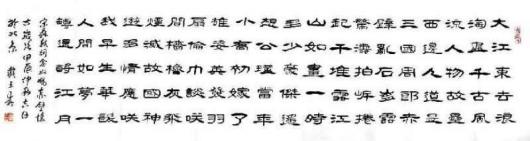 大江東去浪
淘盡千古風
流人物故壘
西邊人道是
三國周郎赤
壁亂石崩雲
驚濤裂岸捲
起千堆雪江
山如畫一時
多少豪傑遙
想公瑾當年
小喬初嫁了
雄姿英發羽
扇綸巾談笑
間檣櫓灰飛
煙滅故國神
遊多情應笑
我早生華髮
人間如夢一
樽還酹江月
宋蘇軾詞念奴嬌赤壁懷
古歲次甲辰
於北京